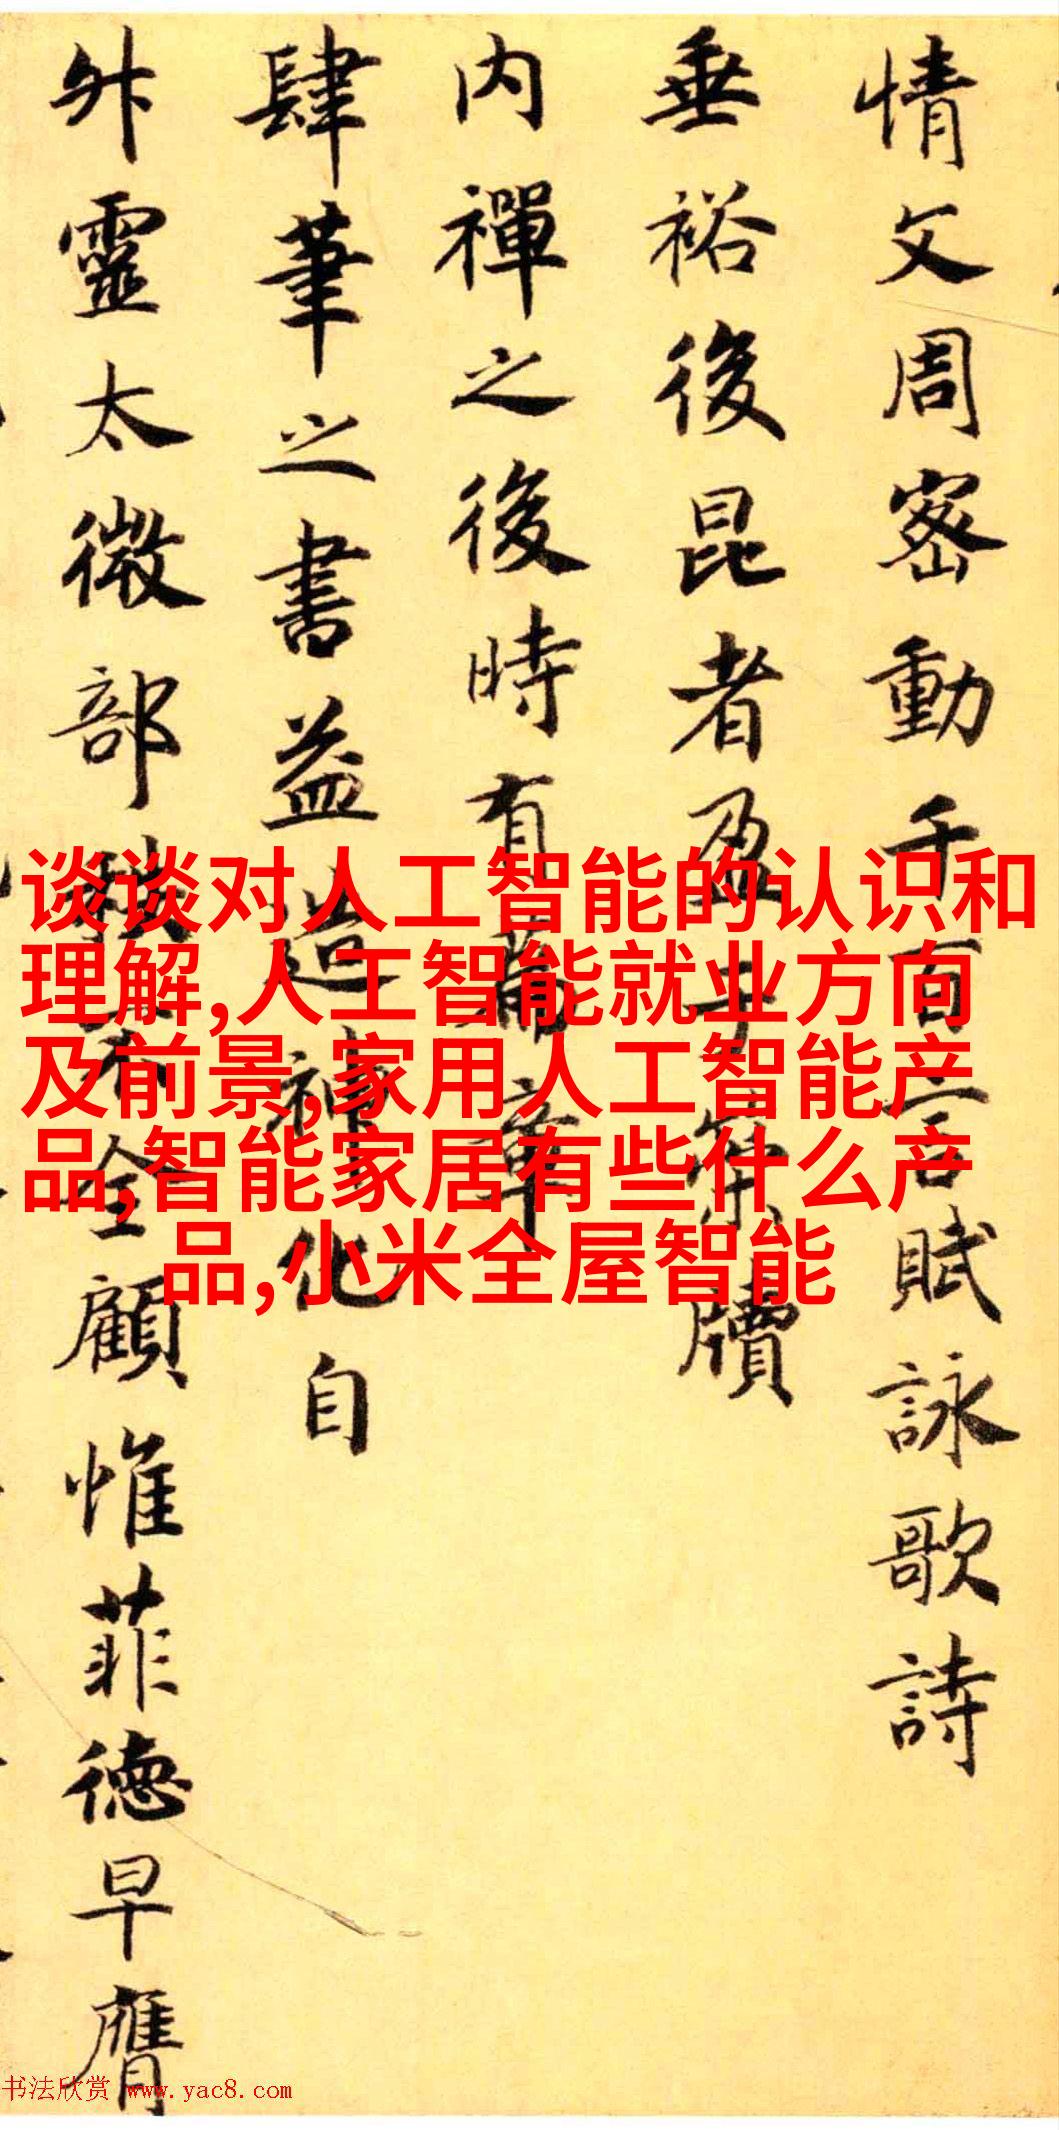 情文周密動千百言賦詠歌詩
垂裕後昆者盈于簡牘
内禪之後時有篇章
肆筆之書益造神化自
昇靈太微部
全顧惟菲德早膺
谈谈对人工智能的认识和
理解,人工智能就业方向
及前景,家用人工智能产
品,智能家居有些什么产
品,小米全屋智能
书法欣赏 www.yac8.com